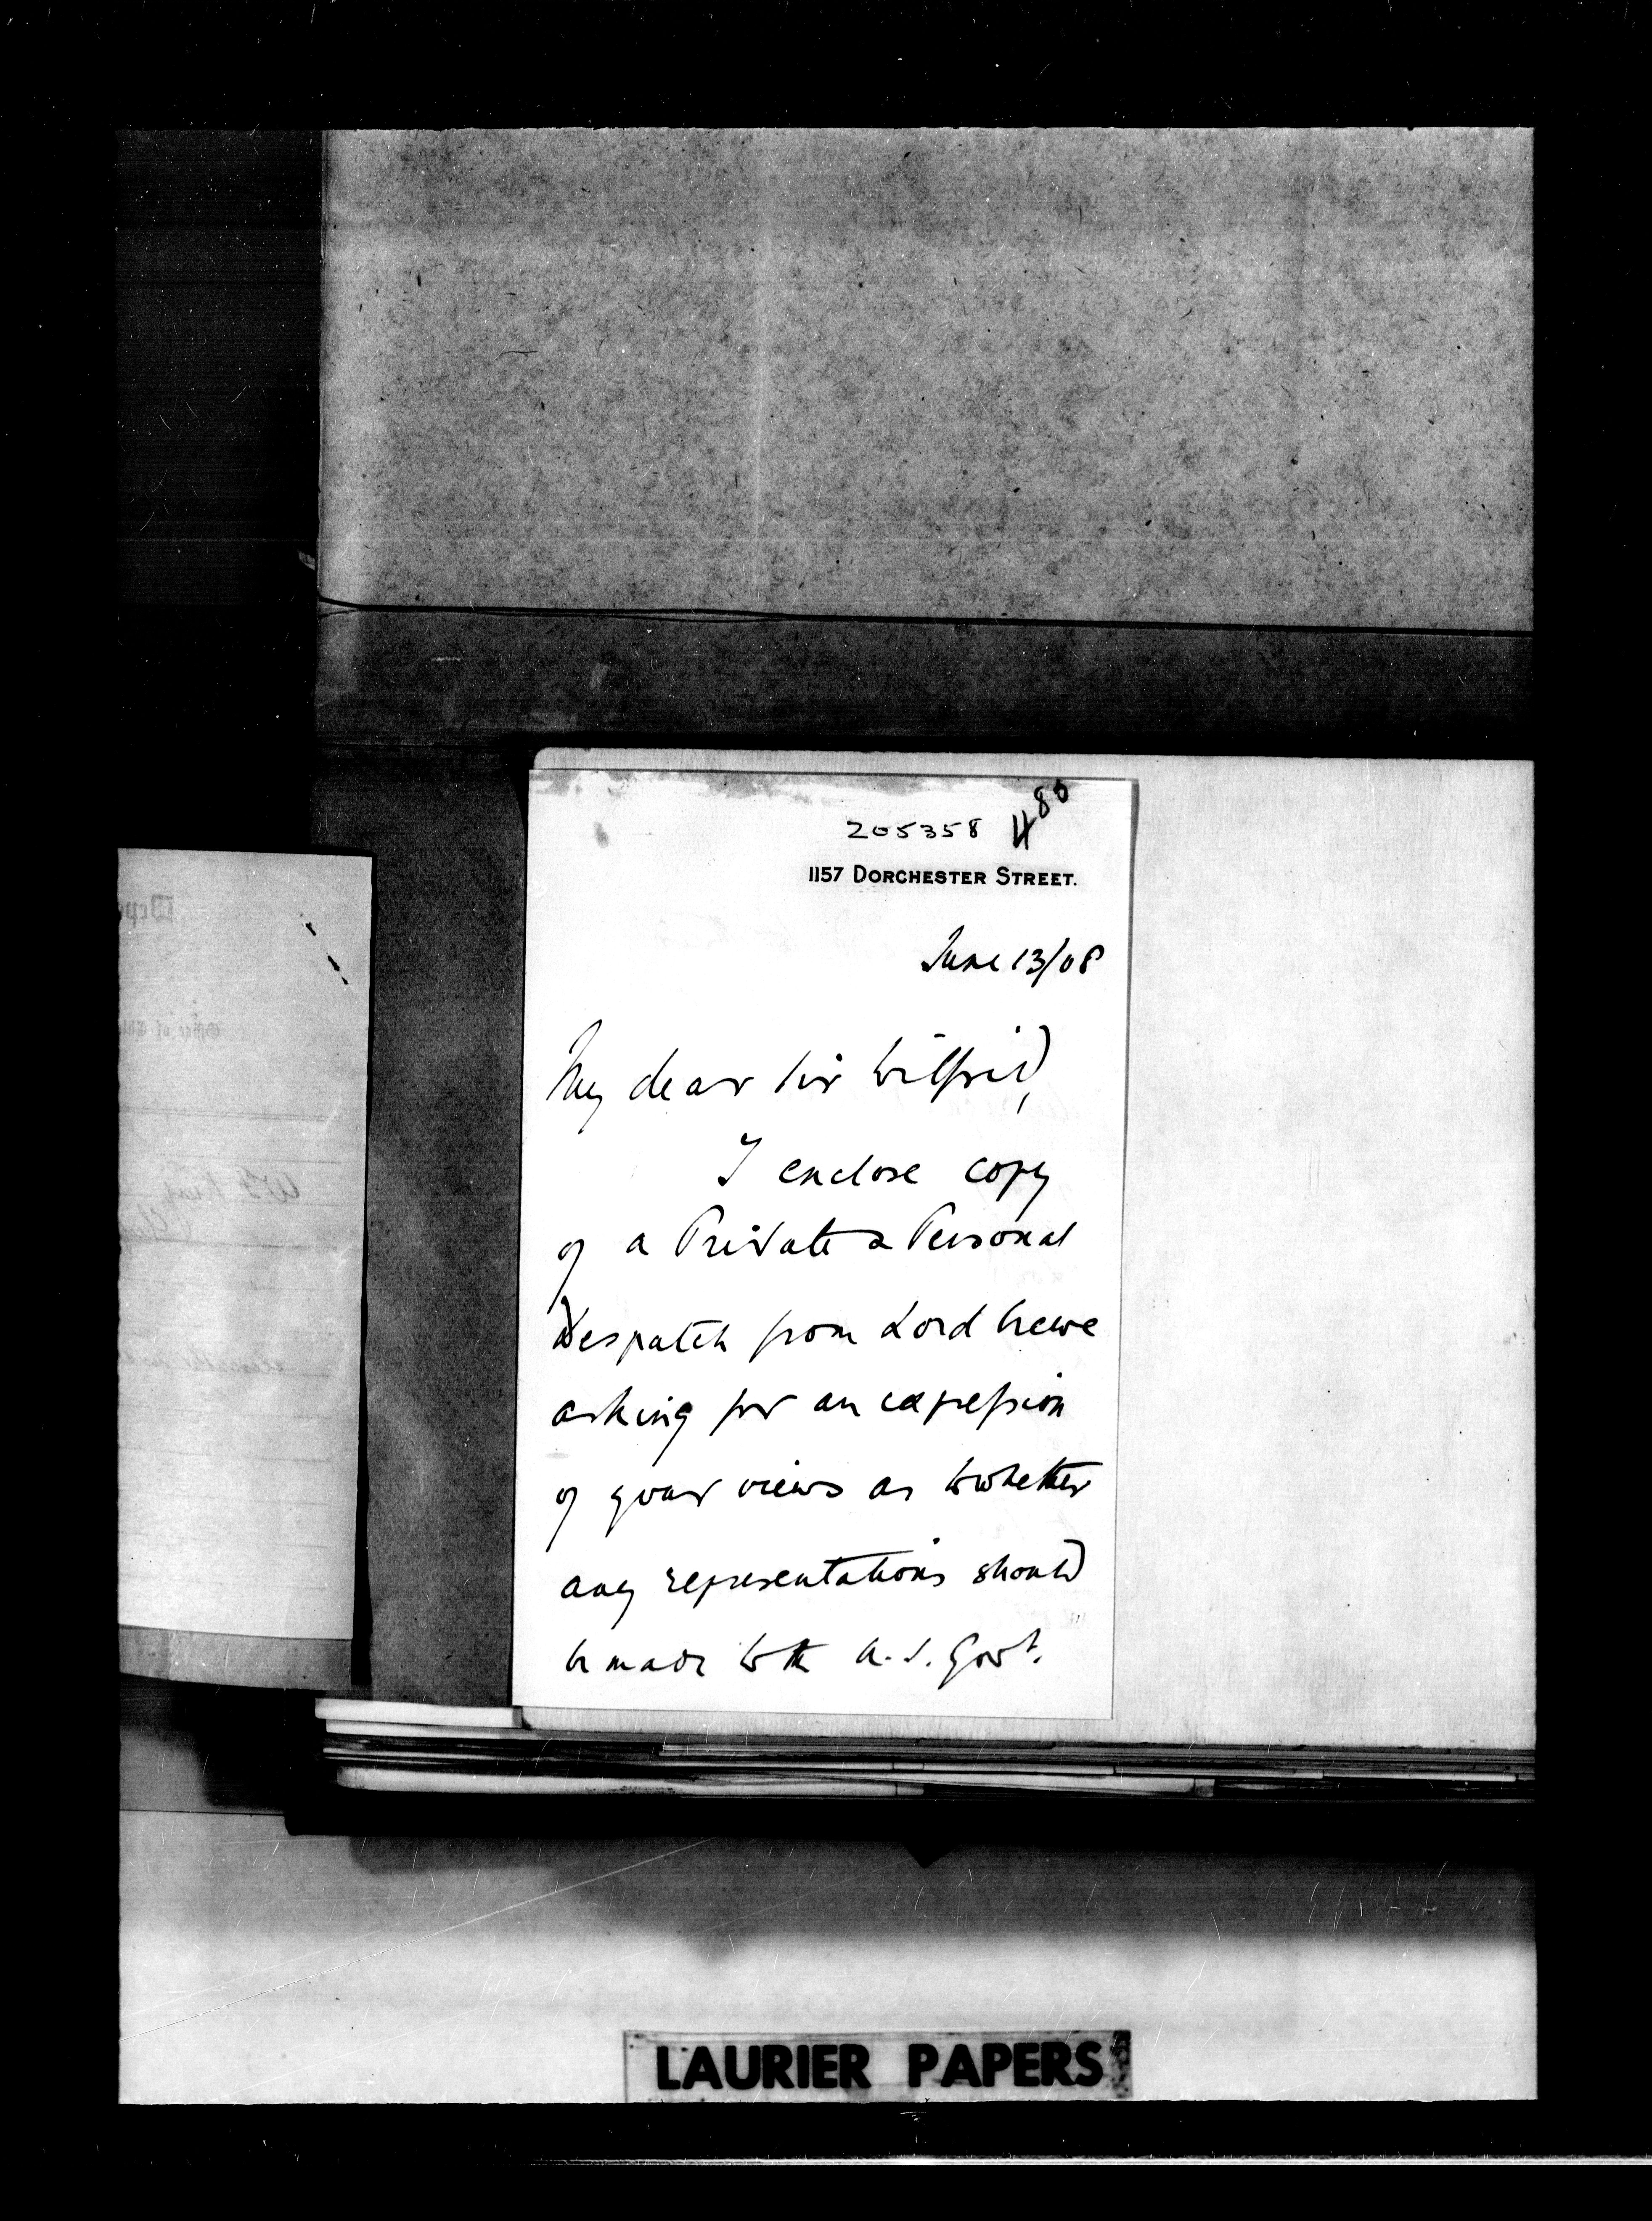 205358 480
1157 DORCHESTER STREET.
June 13/08
My dear Sir Wilfrid,
I enclose copy
of a Private & Personal
Despatch from Lord Crewe
asking for an expression
of your views as to whether
any representations should
be made to the U.S. Govt.
LAURIER PAPERS